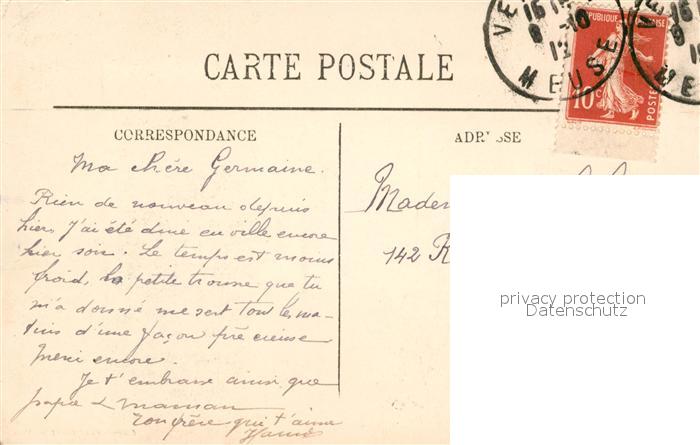 CARTE POSTALE
VE
16
8 -10
12
MEUSE
RÉPUBLIQUE FRANÇAISE
10c
POSTES
VE
16
9
ME
CORRESPONDANCE
ADRESSE
Ma chère Germaine.
Rien de nouveau depuis
hier, J'ai été diné en ville encore
hier soir. Le temps est moins
froid, la petite trousse que tu
m'a donné me sert tout les ma-
tins d'une façon précieuse
Merci encore.
Je t'embrasse ainsi que
papa & maman
Ton frère qui t'aime
Madem
142 R
privacy protection
Datenschutz